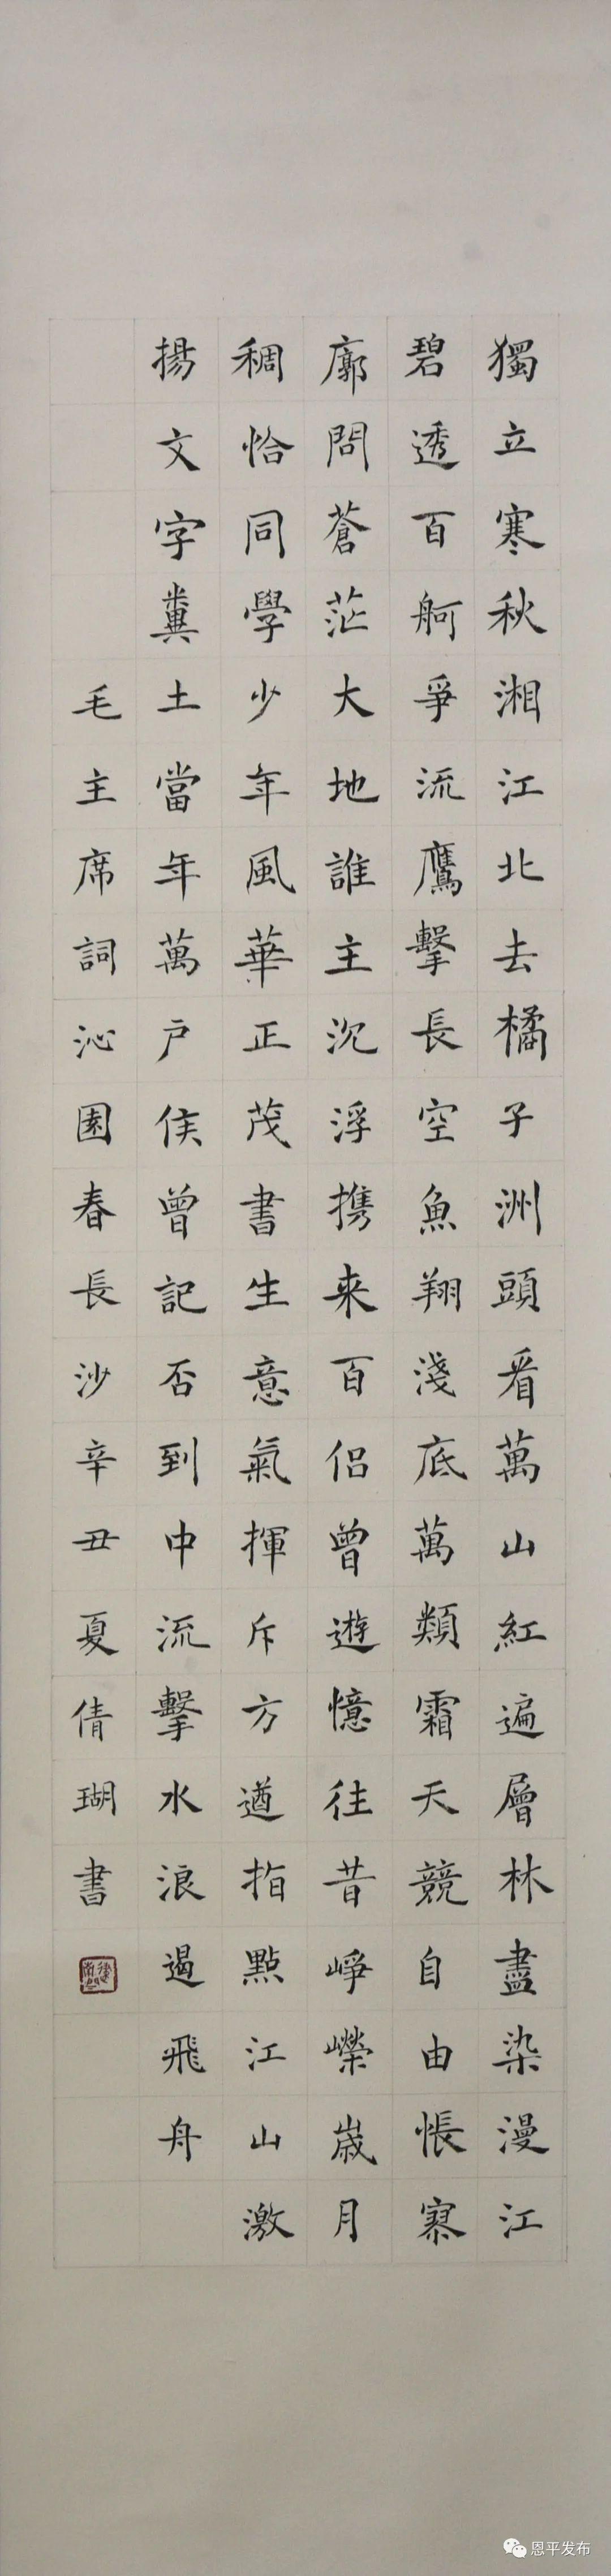 獨立寒秋湘江北去橘子洲頭看萬山紅遍層林盡染漫江
碧透百舸爭流鷹擊長空魚翔淺底萬類霜天競自由悵寥
廓問蒼茫大地誰主沉浮携来百侣曾遊憶往昔崢嶸崴月
稠恰同學少年風華正茂書生意氣揮斥方遒指點江山激
揚文字糞土當年萬户侯曾記否到中流擊水浪遏飛舟
毛主席詞沁園春長沙辛丑夏倩瑚書
恩平发布